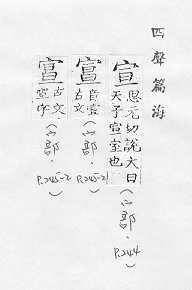 四聲篇海
宣 思元切說文曰
天子宣室也
(宀部. P.244)
音宣
古文
(宀部. P.245-2)
古文
宣字
(宀部. P.245-2)